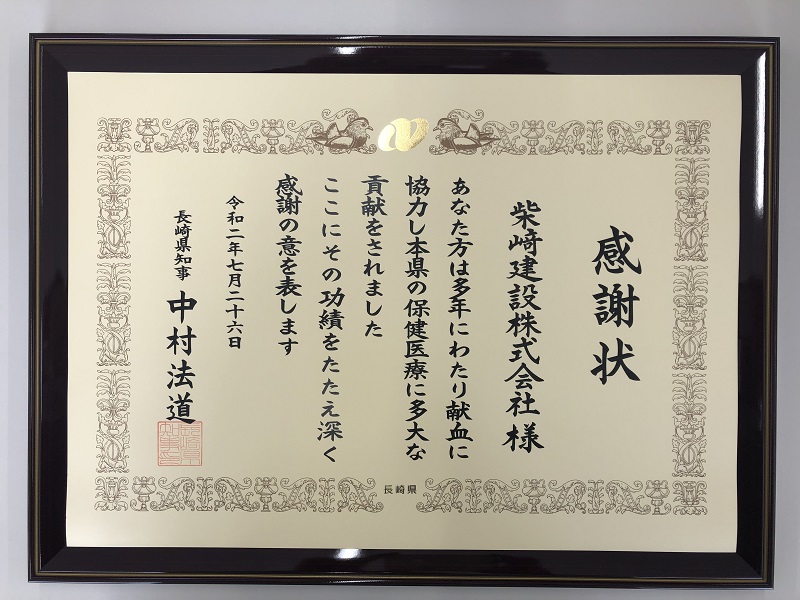 感謝状
柴﨑建設株式会社様
あなた方は多年にわたり献血に
協力し本県の保健医療に多大な
貢献をされました
ここにその功績をたたえ深く
感謝の意を表します
令和二年七月二十六日
長崎県知事 中村法道
長崎県